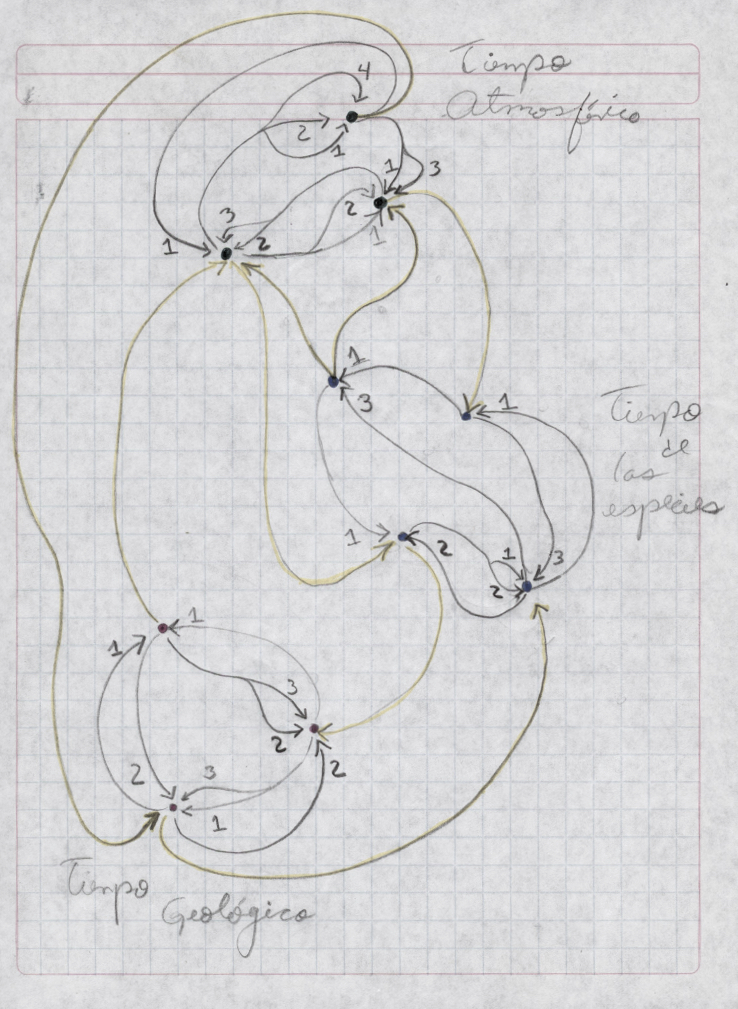 Tiempo
Atmosférico
4
2
1
1
3
3
2
1
2
1
1
3
1
Tiempo
de
las
espécies
1
2
1
3
2
1
1
3
2
2
3
2
1
Tiempo
Geológico